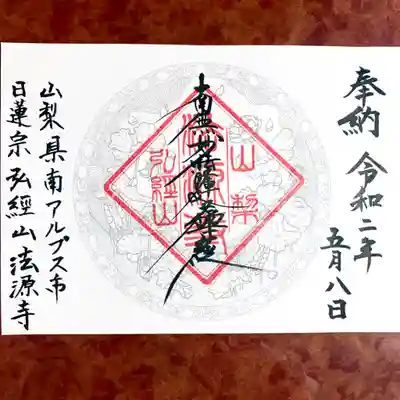 奉納 令和二年
五月八日
南無妙法蓮華経
山梨
法源寺
弘經山
山梨県南アルプス市
日蓮宗 弘經山 法源寺